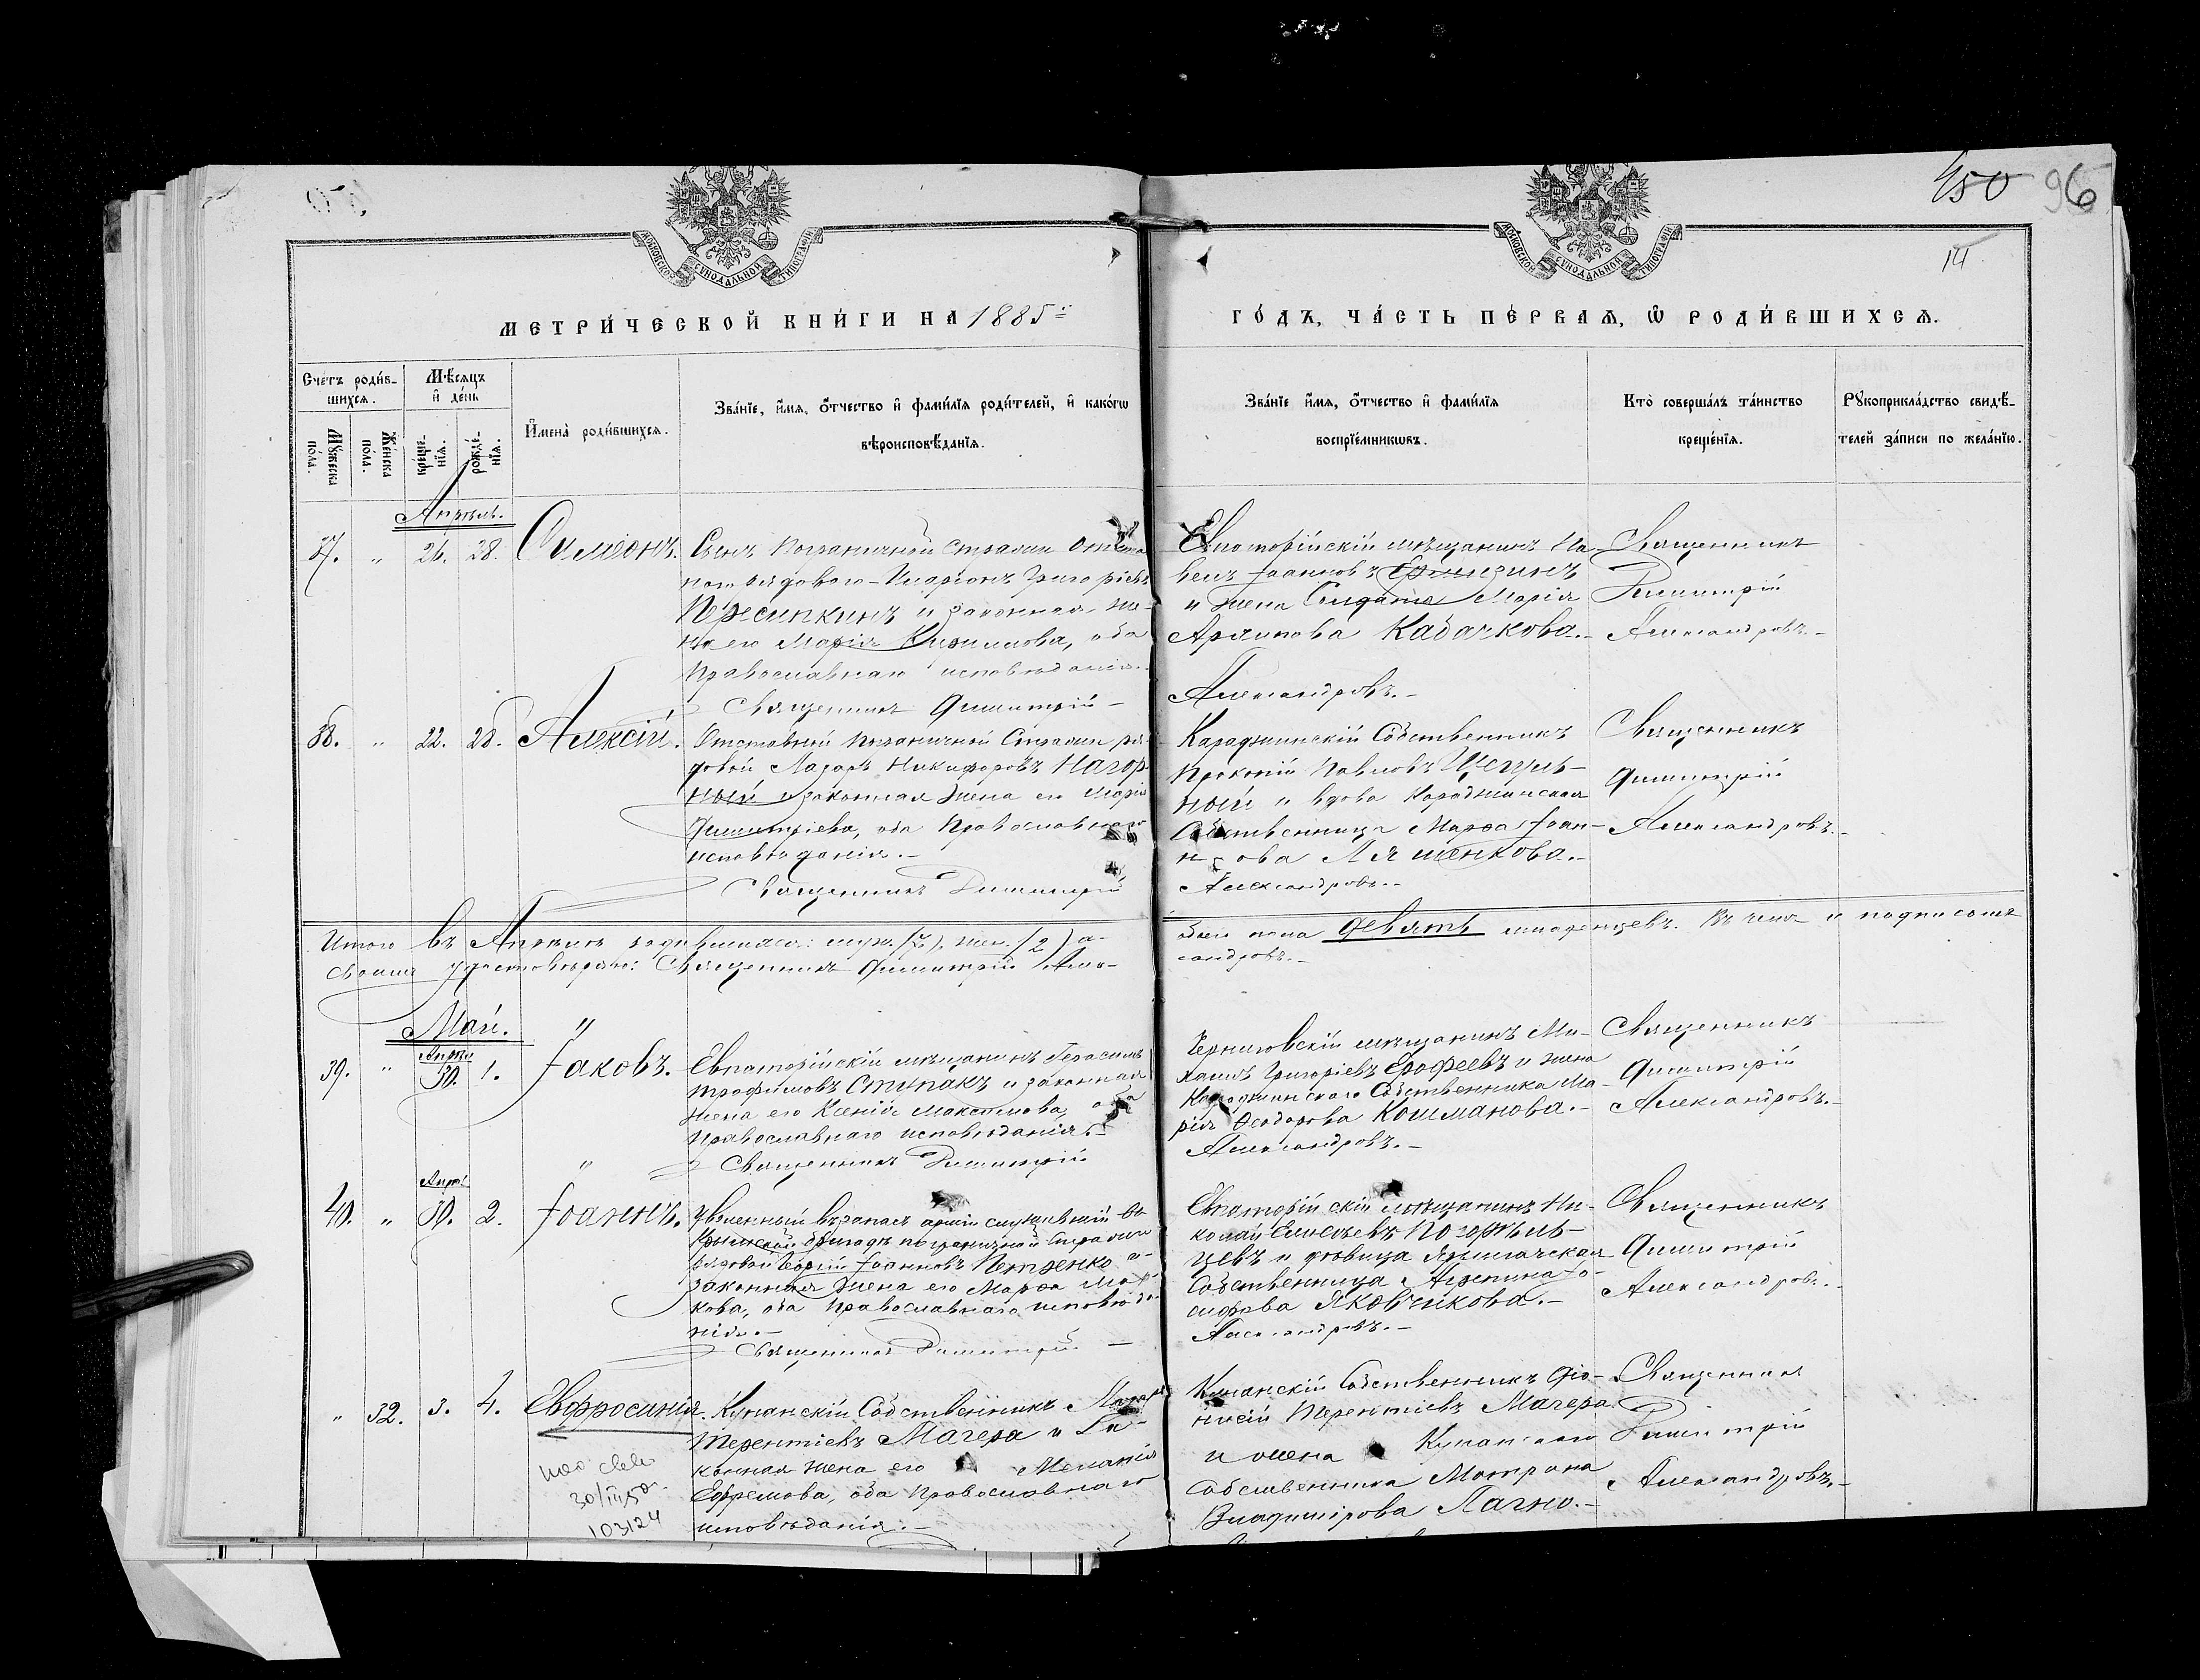 450 96
14
МОСКОВСКОЙ СѴНОДАЛЬНОЙ ТИПОГРАФІИ
МОСКОВСКОЙ СѴНОДАЛЬНОЙ ТИПОГРАФІИ
МЕТРИ́ЧЕСКОЙ КНИ́ГИ НА 1885й
ГО́ДЪ, ЧА́СТЬ ПЕ́РВАѦ, Ѡ҆ РОДИ́ВШИХСѦ.
Счетъ роди́в-
шихсѧ.
Мѣ́сѧцъ
и҆ де́нь
Мꙋжеска по́ла.
Же́нска по́ла.
креще́-
нїѧ.
рожде́-
нїѧ.
И҆мена̀ роди́вшихсѧ.
Зва́нїе, и҆́мѧ, ѻ҆́тчество и҆ фами́лїѧ роди́телей, и҆ како́гѡ
вѣроисповѣ́данїѧ.
Зва́нїе и҆́мѧ, ѻ҆́тчество и҆ фами́лїѧ
воспрїе́мникѡвъ.
Кто̀ соверша́лъ та́инство
креще́нїѧ.
Рꙋкоприкла́дство свидѣ́-
телей за́писи по жела́нїю.
Апрѣль.
37. „ 26. 28. Симеонъ.
Сынъ Пограничной Стражи
рядового Иларіонъ Григорьевъ
Пресипкинъ и законная же-
на его Марія Кирилова, оба
Православнаго исповѣданія.
Священникъ Димитрій
Евпаторійскій мѣщанинъ Па-
велъ Іоанновъ
и жена Солдата Марія
Архипова Кабачкова.
Александровъ.
Священникъ
Димитрій
Александровъ.
38. „ 22. 28. Алексій.
Отставной Пограничной Стражи ря-
довой Лазарь Никифоровъ Нагор-
ный и законная жена его Марія
Димитріева, оба Православнаго
исповѣданія.
Священникъ Димитрій
Караджинскій Собственникъ
Прокопій Павловъ Щегуль-
ный и вдова Караджинская
Собственница Марфа Іоан-
нова Ляшенкова.
Александровъ.
Священникъ
Димитрій
Александровъ.
Итого въ Апрѣлѣ родившихся: муж. (7), жен. (2) а-
обоего пола девять младенцевъ. Въ чемъ и подписомъ
своимъ удостовѣряю: Священникъ Димитрій Алек-
сандровъ.
Май.
39. „ Апрѣл. 30. 1. Іаковъ.
Евпаторійскій мѣщанинъ Герасимъ
Трофимовъ Ступакъ и законная
жена его Ксенія Максимова, оба
Православнаго исповѣданія.
Священникъ Димитрій
Черниговскій мѣщанинъ Ми-
хаилъ Григоріевъ Ерофеевъ и жена
Караджинскаго Собственника Ма-
рія Ѳеодорова Кошманова.
Александровъ.
Священникъ
Димитрій
Александровъ.
40. „ Апрѣл. 30. 2. Іоаннъ.
Уволенный въ запасъ арміи служившій въ
Крымской бригадѣ пограничной Стражи
рядовой Іоанновъ Петренко и
законная жена его Марфа Мар-
кова, оба Православнаго исповѣда-
нія.
Священникъ Димитрій
Евпаторійскій мѣщанинъ Ни-
колай Елисѣевъ Погорѣль-
цевъ и дѣвица
Собственница Агрепина Іо-
сифова Яковчикова.
Александровъ.
Священникъ
Димитрій
Александровъ.
„ 32. 3. 4. Евфросинія.
Кунанскій Собственникъ
Терентіевъ Мачера и За-
конная жена его Меланія
Ефремова, оба Православнаго
исповѣданія.
Кунанскій Собственникъ Діо-
нисій Терентіевъ Мачера
и жена Кунанскаго
Собственника Матрона
Владимірова Лагно.
Священникъ
Димитрій
Александровъ.
103124